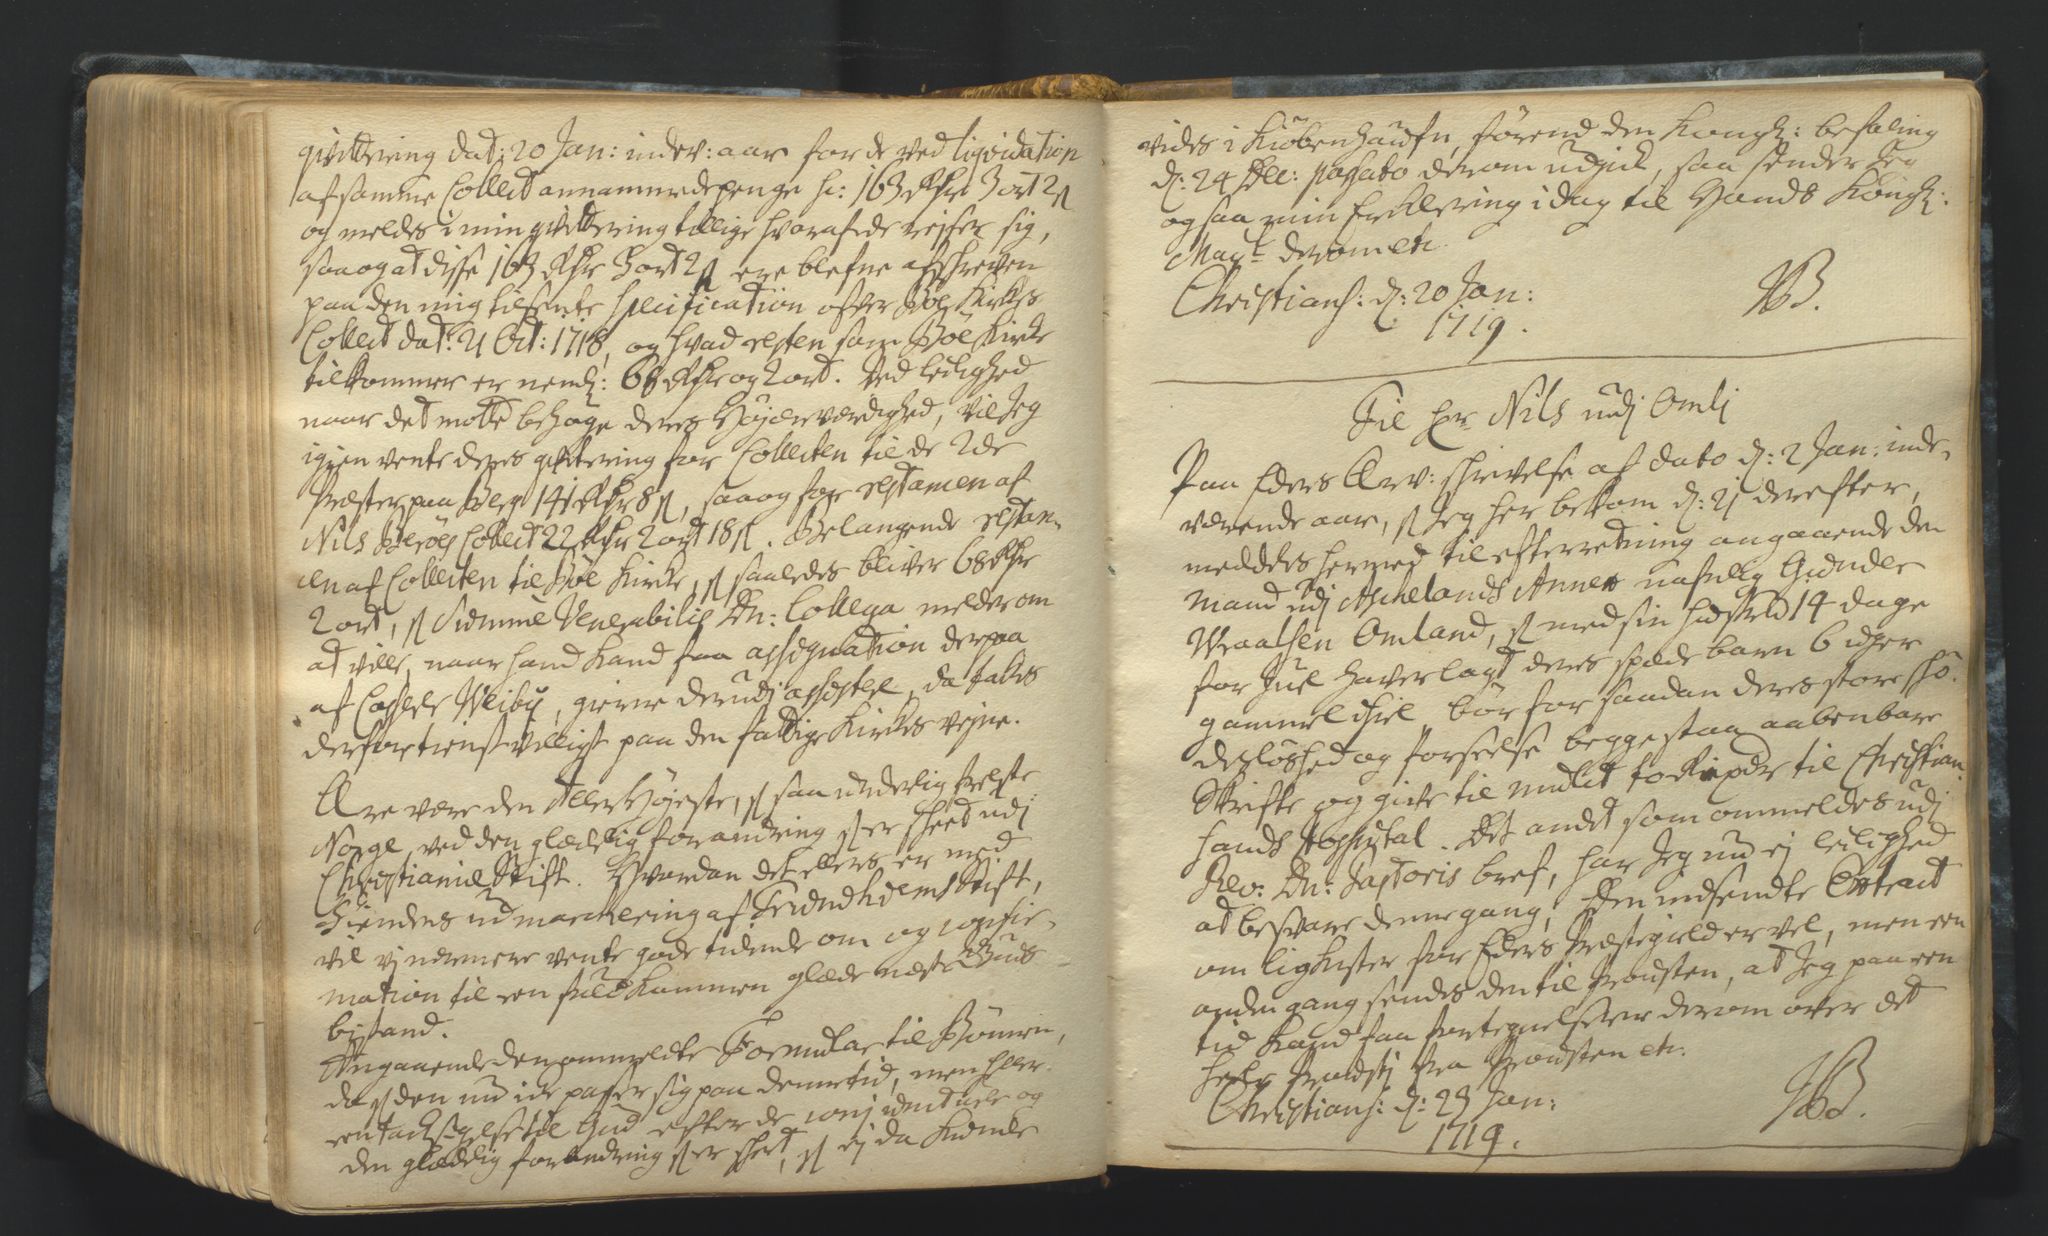 qvittering dat: 20 Jan: indev: aar for de ved liqvidation
af samme Collect annammede penge h: 163 Rdr 3 ort 2 s
og meldes i min qvittering tillige hvoraf de reiser sig,
saa og at disse 163 Rdr 3 ort 2 s ere blefne afskreven
paa den mig tilsente specification ofver Böe Kirkes
Collect dat: 21 Oct: 1718, og hvad resten som Böe Kirke
tilkommer er nemlig: 68 Rdr og 2 ort. Ved leilighed
naar det motte behage deres Höyærværdighed, vil Jeg
igien vente deres qvittering for Collecten til de 2de
Præster paa 141 Rdr 8 s, saa og for restamen af
Nils Collect 22 Rdr 2 ort 18 s. Belangende restan-
en af Collecten til Böe Kirke, s saaledes bliver 68 Rdr
2 ort, s Summe Venerabilis Dn: Collega melder om
at ville, naar hand kand faa assignation derpaa
af Casserer Wleiby, gierne derudj assistere, da takes
derfor tienstvilligst paa den fattige Kirkes vegne.
Ære være den Allerhöjeste, s saa underlig frelste
Norge, ved den glædelig forandring s er skeed udj
Christianiæ Stift. Hvordan det ellers er med
Fiendens udmarchering af Trundhiems Stift,
vil vj nermere vente gode tidende om og confir-
mation til een fuldkommen glæde næst Guds
bistand.
Angaaende den ommeldte Formular til Bönnen,
da s den nu icke passer sig paa denne tid, men heller
een tacksigelse til Gud efter de conj and
den glædelig forandring s er skeet, s ej da kunde
vides i Kiöbenhaufn, förend den Kongl: befaling
d: 24 Dec: passato derom udgick, saa sender Jeg
og saa min Erklering i dag til Hands Kongl:
Mayt derom etc.
Christians: d: 20 Jan:
1719.
JB.
Til Hr Nils udj Omli
Paa Eders Ærv: skrivelse af dato d: 2 Jan: inde-
værende aar, s Jeg her bekom d: 21 derefter,
meddeles hermed til efterretning angaaende den
mand udj Aschelands Annex nafnlig Gunder
Wraalsen Omland, s med sin hustrue 14 dage
for Juel haver lagt deres spæde barn 6 uger
gammel ihiel, bör for saadan deres store skö-
deslöshed og forseelse begge staa aabenbare
Skrifte og give til mulct to Rixdr til Christian-
sands Hospital. Det andet som ommeldes udj
Rev: Dn: Pastoris bref, har Jeg nu ej leilighed
at besvare denne gang, Den indsendte Extract
om ligkister for Eders Præstegield er vel, men een
anden gang sendes den til Provsten, at Jeg paa een
tid kand faa fortegnelserne derom over det
heele Provstj fra Provsten etc.
Christians: d: 23 Jan:
1719.
JB.